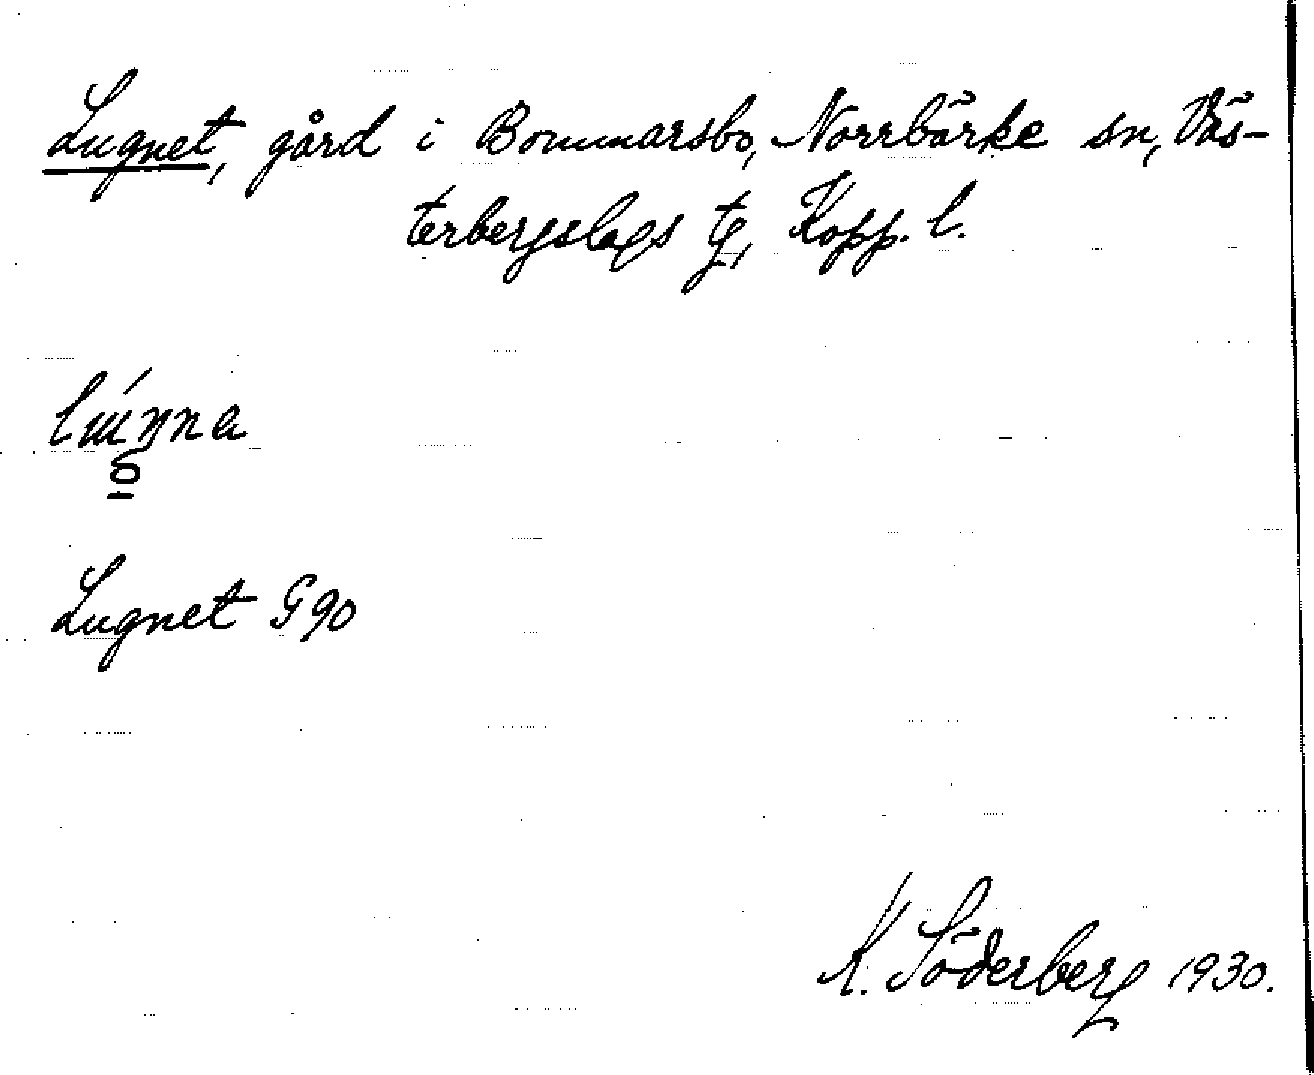 Lugnet, gård i Bommarsbo, Norrbärke sn, Väs-
terbergslags tg, Kopp. l.
Lugnet G 90
K. Söderberg 1930.